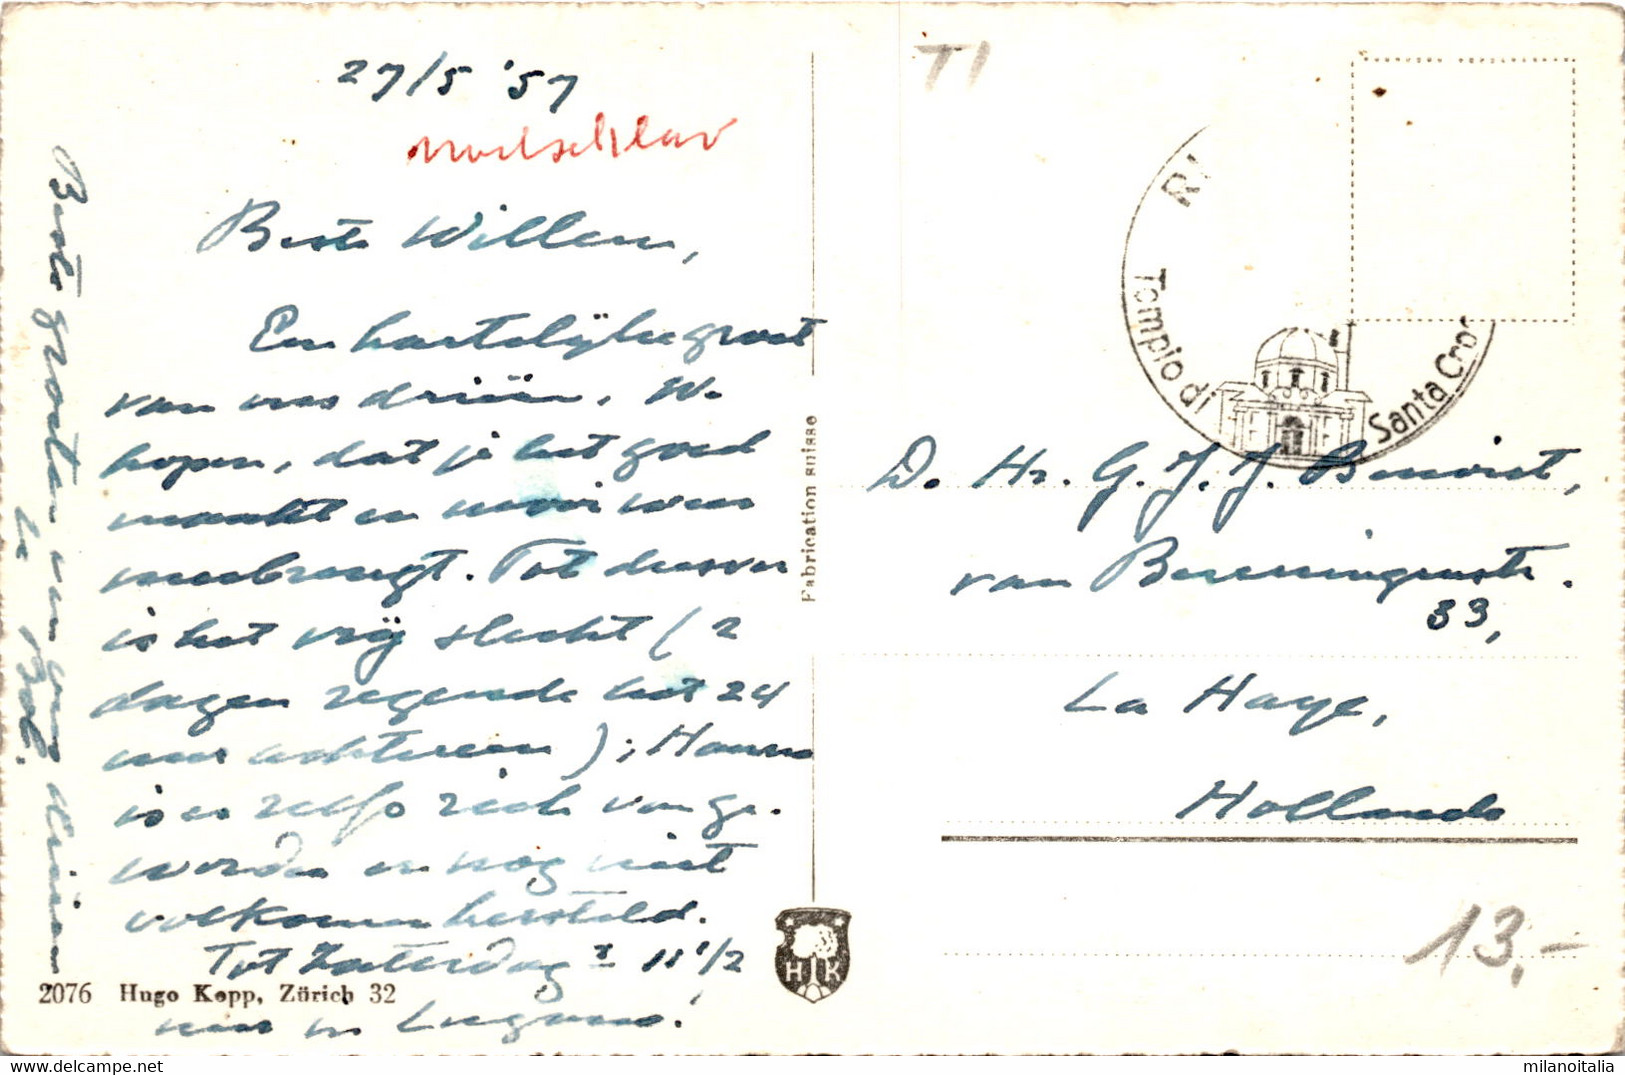 27/5 '57
Beste Willem,
Een hartelijke groet
van ons drieën. We
hopen, dat je het goed
maakt en mooi weer
meebrengt. Tot dusver
is het vrij slecht (2
dagen regende het 24
uur achtereen); Hanna
is er zelfs ziek van ge-
worden en nog niet
volkomen hersteld.
Tot Zaterdag ± 11 1/2
uur in Lugano!
Beste groeten van ons drieën
2076 Hugo Kopp, Zürich 32
Fabrication suisse
H K
TI
R
Tempio di Santa Cro
D. Hr. G. J. J. Benoist,
van
33,
La Haye,
Hollande
13,-
milanoitalia